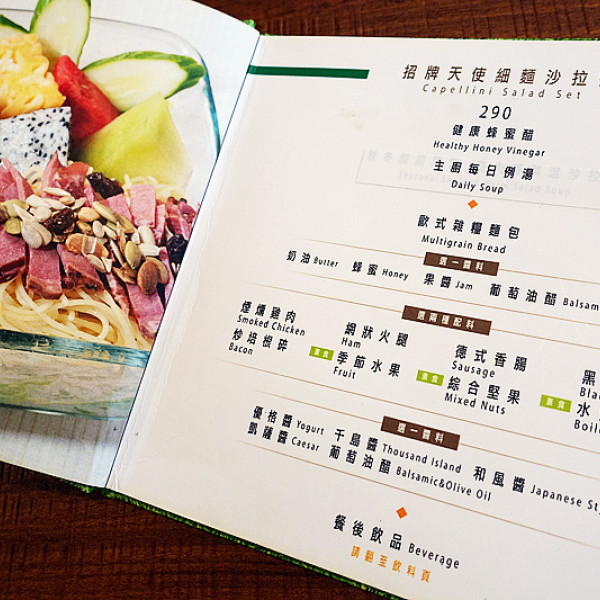 招牌天使細麵沙拉
Capellini Salad Set
290
健康蜂蜜醋
Healthy Honey Vinegar
主廚每日例湯
Daily Soup
歐式雜糧麵包
Multigrain Bread
選一醬料
奶油 Butter 蜂蜜 Honey 果醬 Jam 葡萄油醋 Balsam
選兩種配料
煙燻雞肉 網狀火腿 德式香腸 黑
Smoked Chicken Ham Sausage Bla
炒培根碎 素食 季節水果 素食 綜合堅果 素食 水
Bacon Fruit Mixed Nuts Boil
選一醬料
優格醬 Yogurt 千島醬 Thousand Island 和風醬 Japanese St
凱薩醬 Caesar 葡萄油醋 Balsamic&Olive Oil
餐後飲品 Beverage
請翻至飲料頁